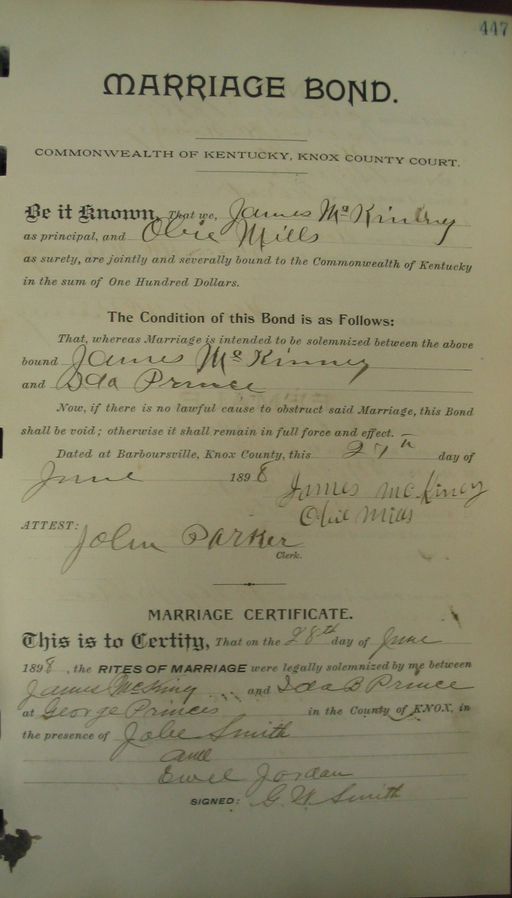 447
MARRIAGE BOND.
COMMONWEALTH OF KENTUCKY, KNOX COUNTY COURT.
Be it Known, That we, James McKinney
as principal, and Obie Mills
as surety, are jointly and severally bound to the Commonwealth of Kentucky
in the sum of One Hundred Dollars.
The Condition of this Bond is as Follows:
That, whereas Marriage is intended to be solemnized between the above
bound James McKinney
and Ida Prince
Now, if there is no lawful cause to obstruct said Marriage, this Bond
shall be void; otherwise it shall remain in full force and effect.
Dated at Barboursville, Knox County, this 27th day of
June 1898
James McKiney
Obie
ATTEST:
John Parker
Clerk.
MARRIAGE CERTIFICATE.
This is to Certify, That on the 28th day of June
1898, the RITES OF MARRIAGE were legally solemnized by me between
James McKiney and Ida B Prince
at George Princes in the County of KNOX, in
the presence of Smith
and
Jordan
SIGNED: G. W. Smith